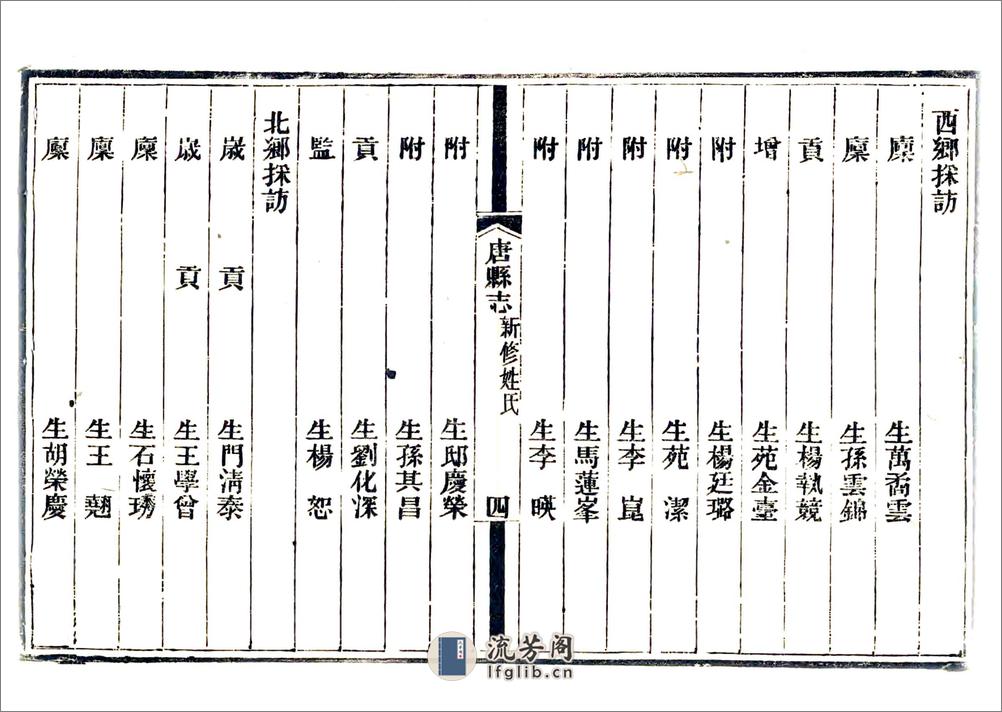 西鄉採訪
廩生萬喬雲
廩生孫雲錦
貢生楊執競
增生苑金臺
附生楊廷璐
附生苑潔
附生李崑
附生馬蓮峯
附生李暎
唐縣志 新修姓氏 四
附生邸慶榮
附生孫其昌
貢生劉化深
監生楊恕
北鄉採訪
歲貢生門淸泰
歲貢生王學曾
廩生石懷琇
廩生王翹
廩生胡榮慶
流芳阁
lfglib.cn